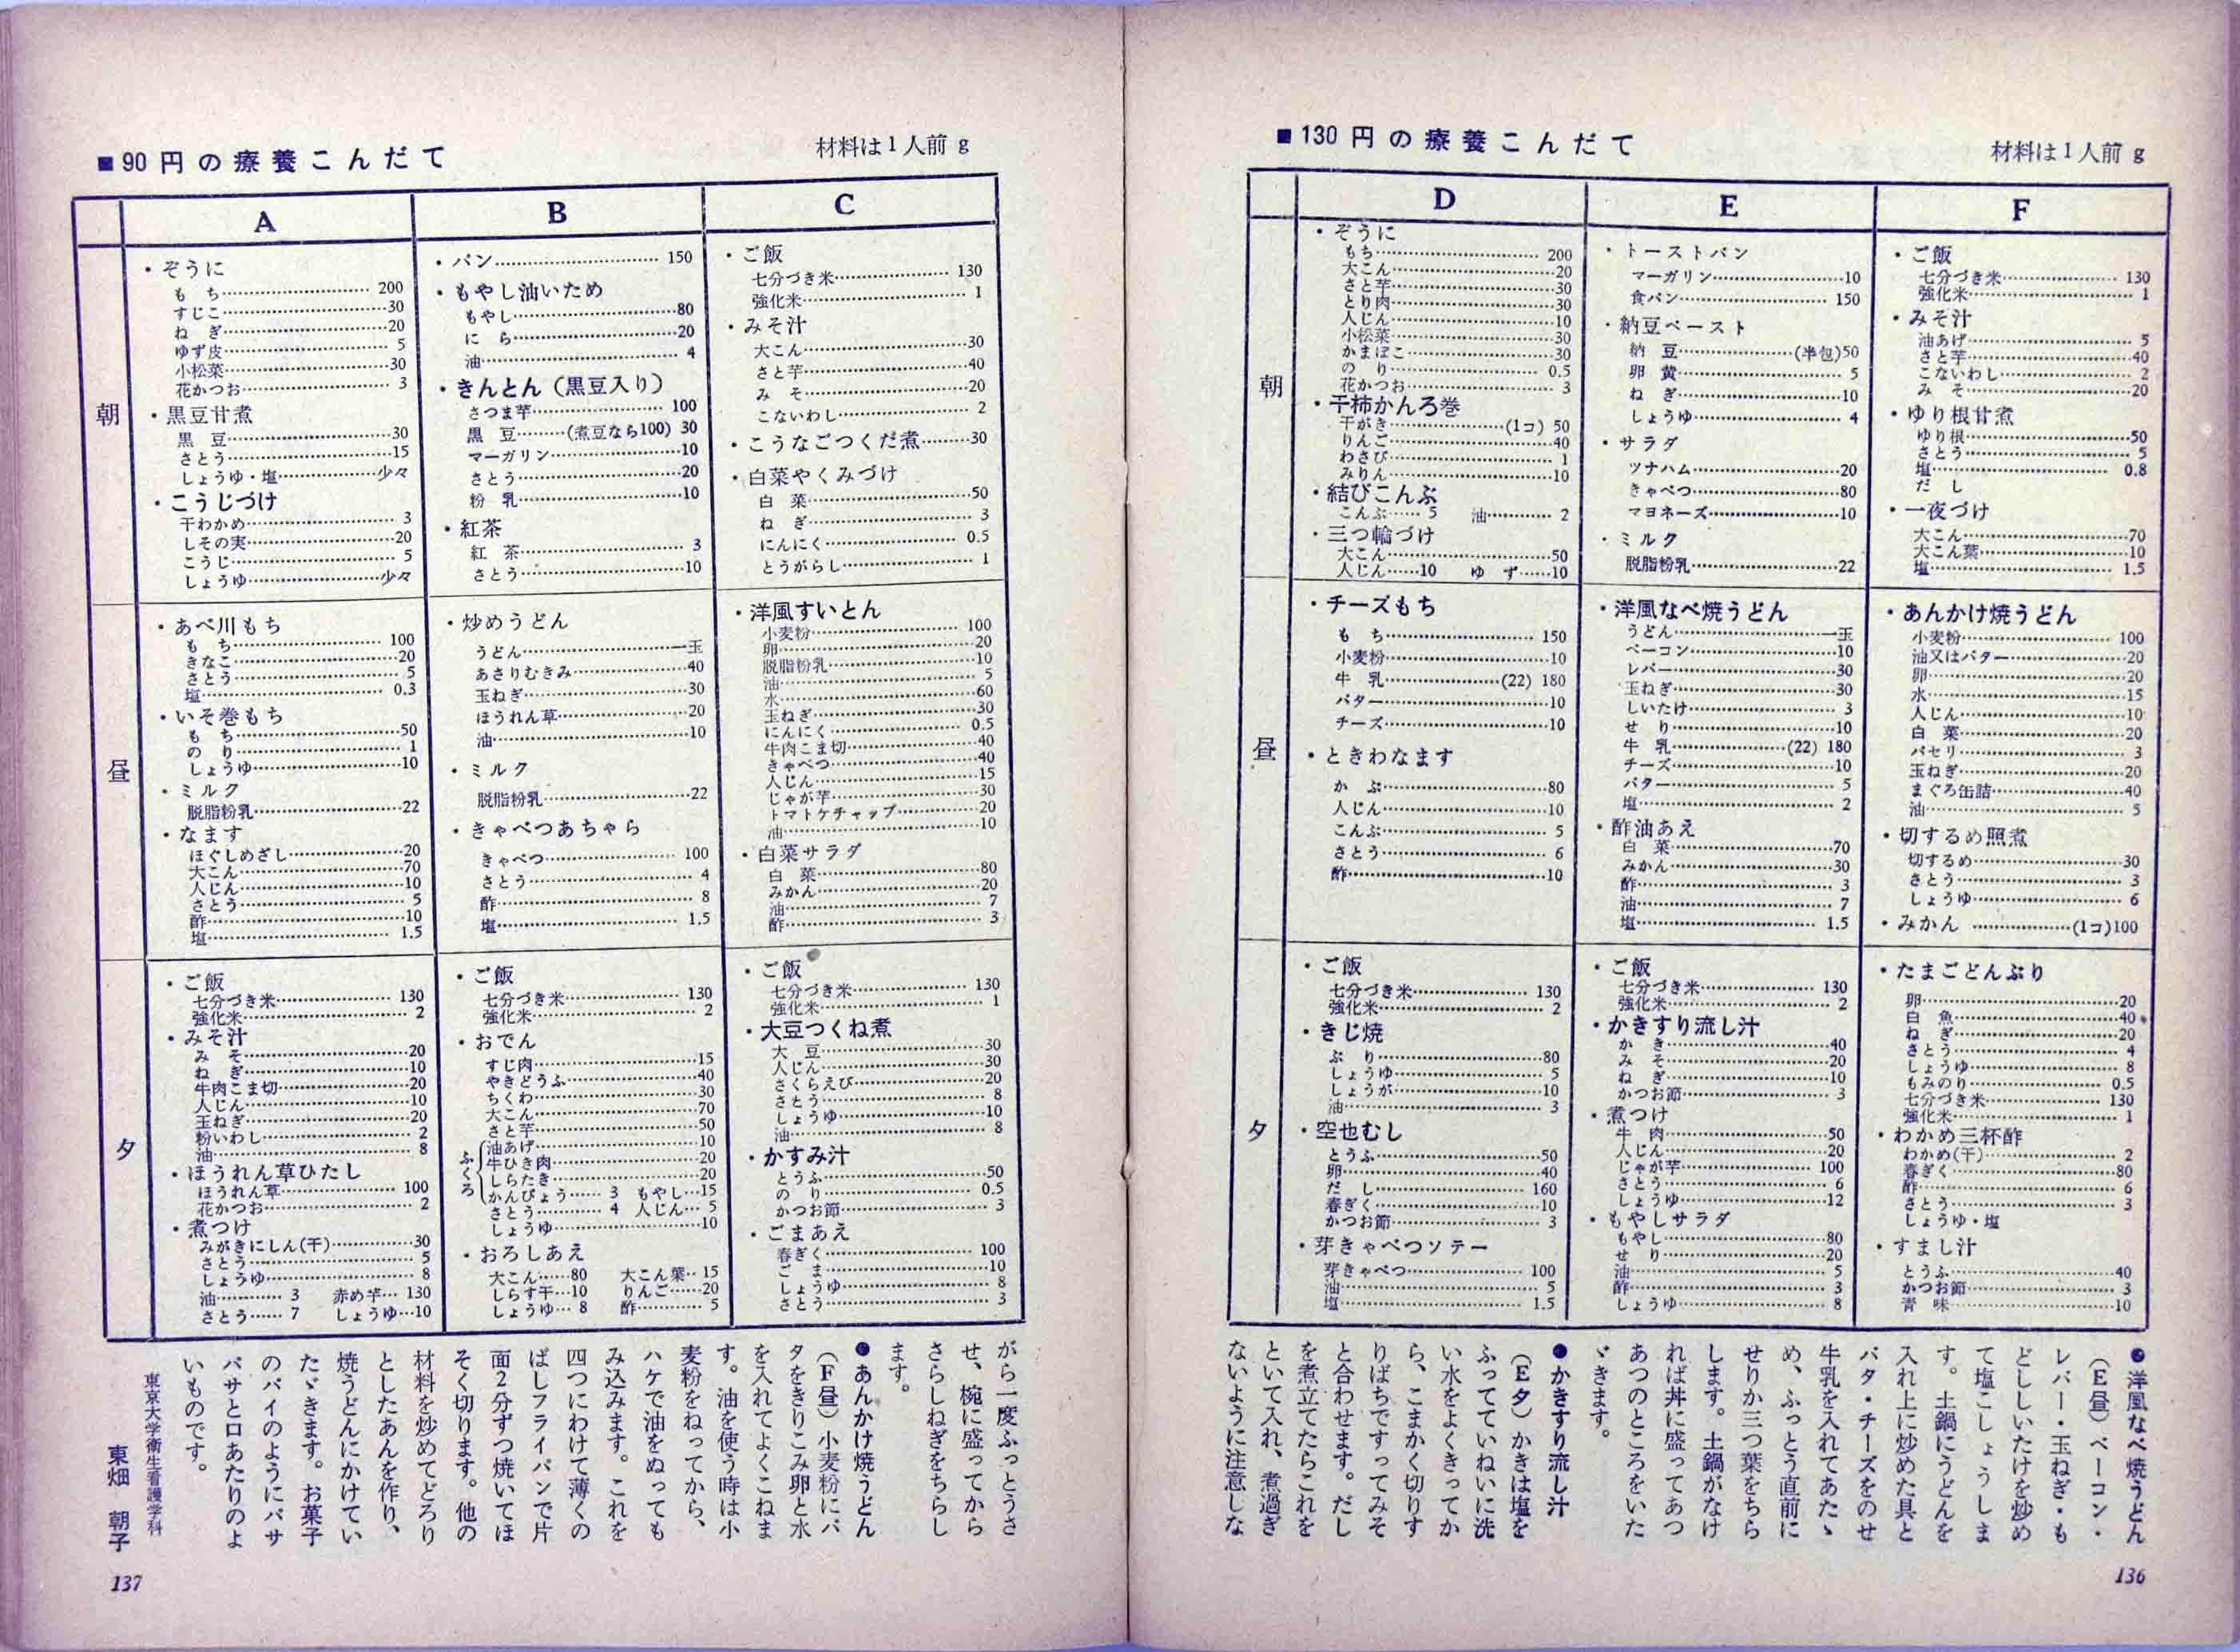 ■130円の療養こんだて
材料は1人前 g
D
E
F
朝
・ぞうに
もち……200
大こん……20
さと芋……30
とり肉……30
人じん……10
小松菜……30
かまぼこ……30
のり……0.5
花かつお……3
・干柿かんろ巻
干がき……(1コ) 50
りんご……40
わさび……1
みりん……10
・結びこんぶ
こんぶ……5 油……2
・三つ輪づけ
大こん……50
人じん……10 ゆず……10
・トーストパン
マーガリン……10
食パン……150
・納豆ペースト
納豆……(半包)50
卵黄……5
ねぎ……10
しょうゆ……4
・サラダ
ツナハム……20
きゃべつ……80
マヨネーズ……10
・ミルク
脱脂粉乳……22
・ご飯
七分づき米……130
強化米……1
・みそ汁
油あげ……5
さと芋……40
こないわし……2
みそ……20
・ゆり根甘煮
ゆり根……50
さとう……5
塩……0.8
だし
・一夜づけ
大こん……70
大こん葉……10
塩……1.5
昼
・チーズもち
もち……150
小麦粉……10
牛乳……(22) 180
バター……10
チーズ……10
・ときわなます
かぶ……80
人じん……10
こんぶ……5
さとう……6
酢……10
・洋風なべ焼うどん
うどん……一玉
ベーコン……10
レバー……30
玉ねぎ……30
しいたけ……3
せり……10
牛乳……(22) 180
チーズ……10
バター……5
塩……2
・酢油あえ
白菜……70
みかん……30
酢……3
油……7
塩……1.5
・あんかけ焼うどん
小麦粉……100
油又はバター……20
卵……20
水……15
人じん……10
白菜……20
パセリ……3
玉ねぎ……20
まぐろ缶詰……40
油……5
・切するめ照煮
切するめ……30
さとう……3
しょうゆ……6
・みかん……(1コ)100
夕
・ご飯
七分づき米……130
強化米……2
・きじ焼
ぶり……80
しょうゆ……5
しょうが……10
油……3
・空也むし
とうふ……50
卵……40
だし……160
春ぎく……10
かつお節……3
・芽きゃべつソテー
芽きゃべつ……100
油……5
塩……1.5
・ご飯
七分づき米……130
強化米……2
・かきすり流し汁
かき……40
みそ……20
ねぎ……10
かつお節……3
・煮つけ
牛肉……50
人じん……20
じゃが芋……100
さとう……6
しょうゆ……12
・もやしサラダ
もやし……80
せり……20
油……5
酢……3
しょうゆ……8
・たまごどんぶり
卵……20
白魚……40
ねぎ……20
さとう……4
しょうゆ……8
もみのり……0.5
七分づき米……130
強化米……1
・わかめ三杯酢
わかめ(干)……2
春ぎく……80
酢……6
さとう……3
しょうゆ・塩
・すまし汁
とうふ……40
かつお節……3
青味……10
●洋風なべ焼うどん
(E昼) ベーコン・
レバー・玉ねぎ・も
どししいたけを炒め
て塩こしょうしま
す。土鍋にうどんを
入れ上に炒めた具と
バタ・チーズをのせ
牛乳を入れてあたゝ
め、ふっとう直前に
せりか三つ葉をちら
します。土鍋がなけ
れば丼に盛ってあつ
あつのところをいた
ゞきます。
●かきすり流し汁
(E夕) かきは塩を
ふってていねいに洗
い水をよくきってか
ら、こまかく切りす
りばちですってみそ
と合わせます。だし
を煮立てたらこれを
といて入れ、煮過ぎ
ないように注意しな
136
■90円の療養こんだて
材料は1人前 g
A
B
C
朝
・ぞうに
もち……200
すじこ……30
ねぎ……20
ゆず皮……5
小松菜……30
花かつお……3
・黒豆甘煮
黒豆……30
さとう……15
しょうゆ・塩……少々
・こうじづけ
干わかめ……3
しその実……20
こうじ……5
しょうゆ……少々
・パン……150
・もやし油いため
もやし……80
にら……20
油……4
・きんとん（黒豆入り）
さつま芋……100
黒豆……(煮豆なら100) 30
マーガリン……10
さとう……20
粉乳……10
・紅茶
紅茶……3
さとう……10
・ご飯
七分づき米……130
強化米……1
・みそ汁
大こん……30
さと芋……40
みそ……20
こないわし……2
・こうなごつくだ煮……30
・白菜やくみづけ
白菜……50
ねぎ……3
にんにく……0.5
とうがらし……1
昼
・あべ川もち
もち……100
きなこ……20
さとう……5
塩……0.3
・いそ巻もち
もち……50
のり……1
しょうゆ……10
・ミルク
脱脂粉乳……22
・なます
ほぐしめざし……20
大こん……70
人じん……10
さとう……5
酢……10
塩……1.5
・炒めうどん
うどん……一玉
あさりむきみ……40
玉ねぎ……30
ほうれん草……20
油……10
・ミルク
脱脂粉乳……22
・きゃべつあちゃら
きゃべつ……100
さとう……4
酢……8
塩……1.5
・洋風すいとん
小麦粉……100
卵……20
脱脂粉乳……10
油……5
水……60
玉ねぎ……30
にんにく……0.5
牛肉こま切……40
きゃべつ……40
人じん……15
じゃが芋……30
トマトケチャップ……20
油……10
・白菜サラダ
白菜……80
みかん……20
油……7
酢……3
夕
・ご飯
七分づき米……130
強化米……2
・みそ汁
みそ……20
ねぎ……10
牛肉こま切……20
人じん……10
玉ねぎ……20
粉いわし……2
油……8
・ほうれん草ひたし
ほうれん草……100
花かつお……2
・煮つけ
みがきにしん(干)……30
さとう……5
しょうゆ……8
油……3 赤め芋…130
さとう……7 しょうゆ…10
・ご飯
七分づき米……130
強化米……2
・おでん
すじ肉……15
やきどうふ……40
ちくわ……30
大こん……70
さと芋……50
ふくろ
油あげ……10
牛ひき肉……20
しらたき……20
かんぴょう……3 もやし…15
さとう……4 人じん…5
しょうゆ……10
・おろしあえ
大こん……80 大こん葉‥15
しらす干…10 りんご……20
しょうゆ…8 酢……5
・ご飯
七分づき米……130
強化米……1
・大豆つくね煮
大豆……30
人じん……30
さくらえび……20
さとう……8
しょうゆ……10
油……8
・かすみ汁
とうふ……50
のり……0.5
かつお節……3
・ごまあえ
春ぎく……100
ごま……10
しょうゆ……8
さとう……3
がら一度ふっとうさ
せ、椀に盛ってから
さらしねぎをちらし
ます。
●あんかけ焼うどん
(F昼) 小麦粉にバ
タをきりこみ卵と水
を入れてよくこねま
す。油を使う時は小
麦粉をねってから、
ハケで油をぬっても
み込みます。これを
四つにわけて薄くの
ばしフライパンで片
面2分ずつ焼いてほ
そく切ります。他の
材料を炒めてどろり
としたあんを作り、
焼うどんにかけてい
たゞきます。お菓子
のパイのようにパサ
パサと口あたりのよ
いものです。
東京大学衛生看護学科
東畑 朝子
137